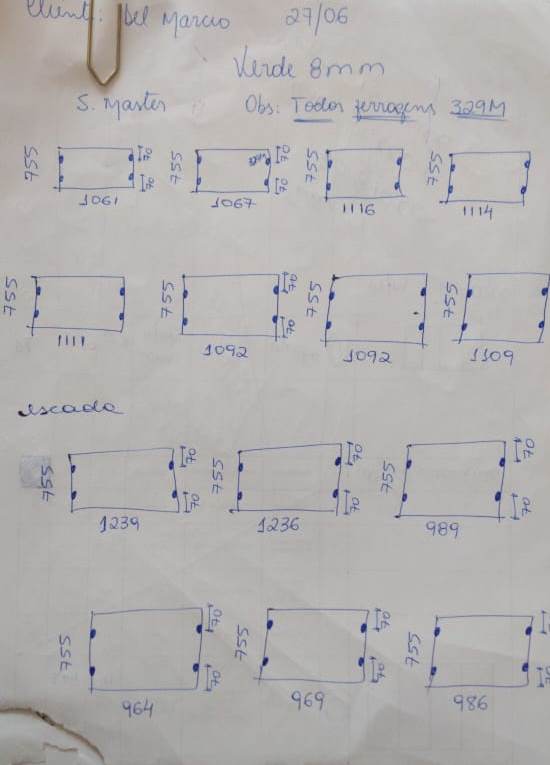 Client: Del Marcio 27/06
Verde 8mm
S. Master Obs: Todos ferragens 329M
755 70 70 755 70 70 755 755
1061 1067 1116 1114
755 755 70 70 755 755
1111 1092 1092 1109
escada
755 70 70 755 70 70 755 70 70
1239 1236 989
755 70 70 755 70 70 755 70
964 969 986